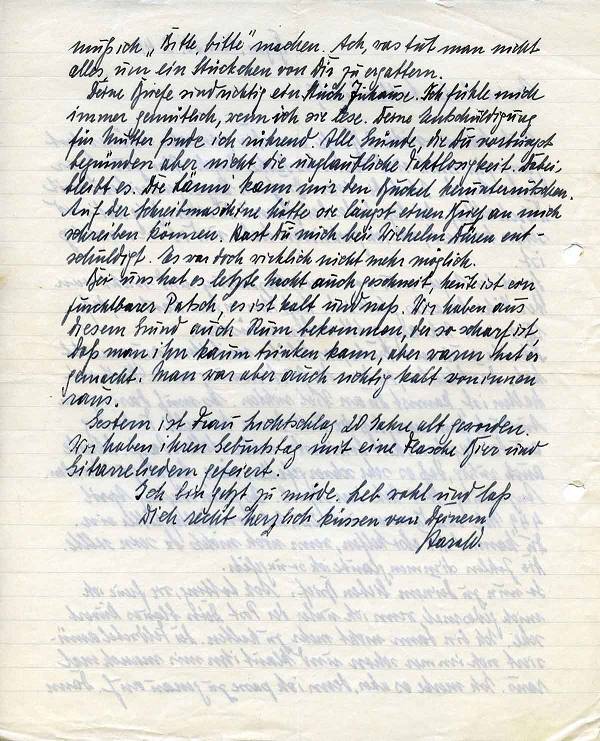 muß ich „Bitte, bitte“ machen. Ach, was tut man nicht
alles, um ein Stückchen von Dir zu ergattern.
Deine Briefe sind richtig ein Stück Zuhause. Ich fühle mich
immer gemütlich, wenn ich sie lese. Deine Entschuldigung
für Mutter finde ich rührend. Alle Gründe, die Du vorbringst
begründen aber nicht die unglaubliche Taktlosigkeit. Dabei
bleibt es. Die kann mir den Buckel herunterrutschen.
Auf der Schreibmaschine hätte sie längst einen Brief an mich
schreiben können. Hast Du mich bei Wilhelm Düren ent-
schuldigt. Es war doch wirklich nicht mehr möglich.
Bei uns hat es letzte Nacht auch geschneit, heute ist ein
furchtbarer Patsch, es ist kalt und naß. Wir haben aus
diesem Grund auch Rum bekommen, der so scharf ist,
daß man ihn kaum trinken kann, aber warm hat er
gemacht. Man war aber auch richtig kalt von innen
raus.
Gestern ist Frau Lichtschlag 20 Jahre alt geworden.
Wir haben ihren Geburtstag mit eine Flasche Bier und
Gitarreliedern gefeiert.
Ich bin jetzt zu müde. Leb wohl und laß
Dich recht herzlich küssen von Deinem
Harald.